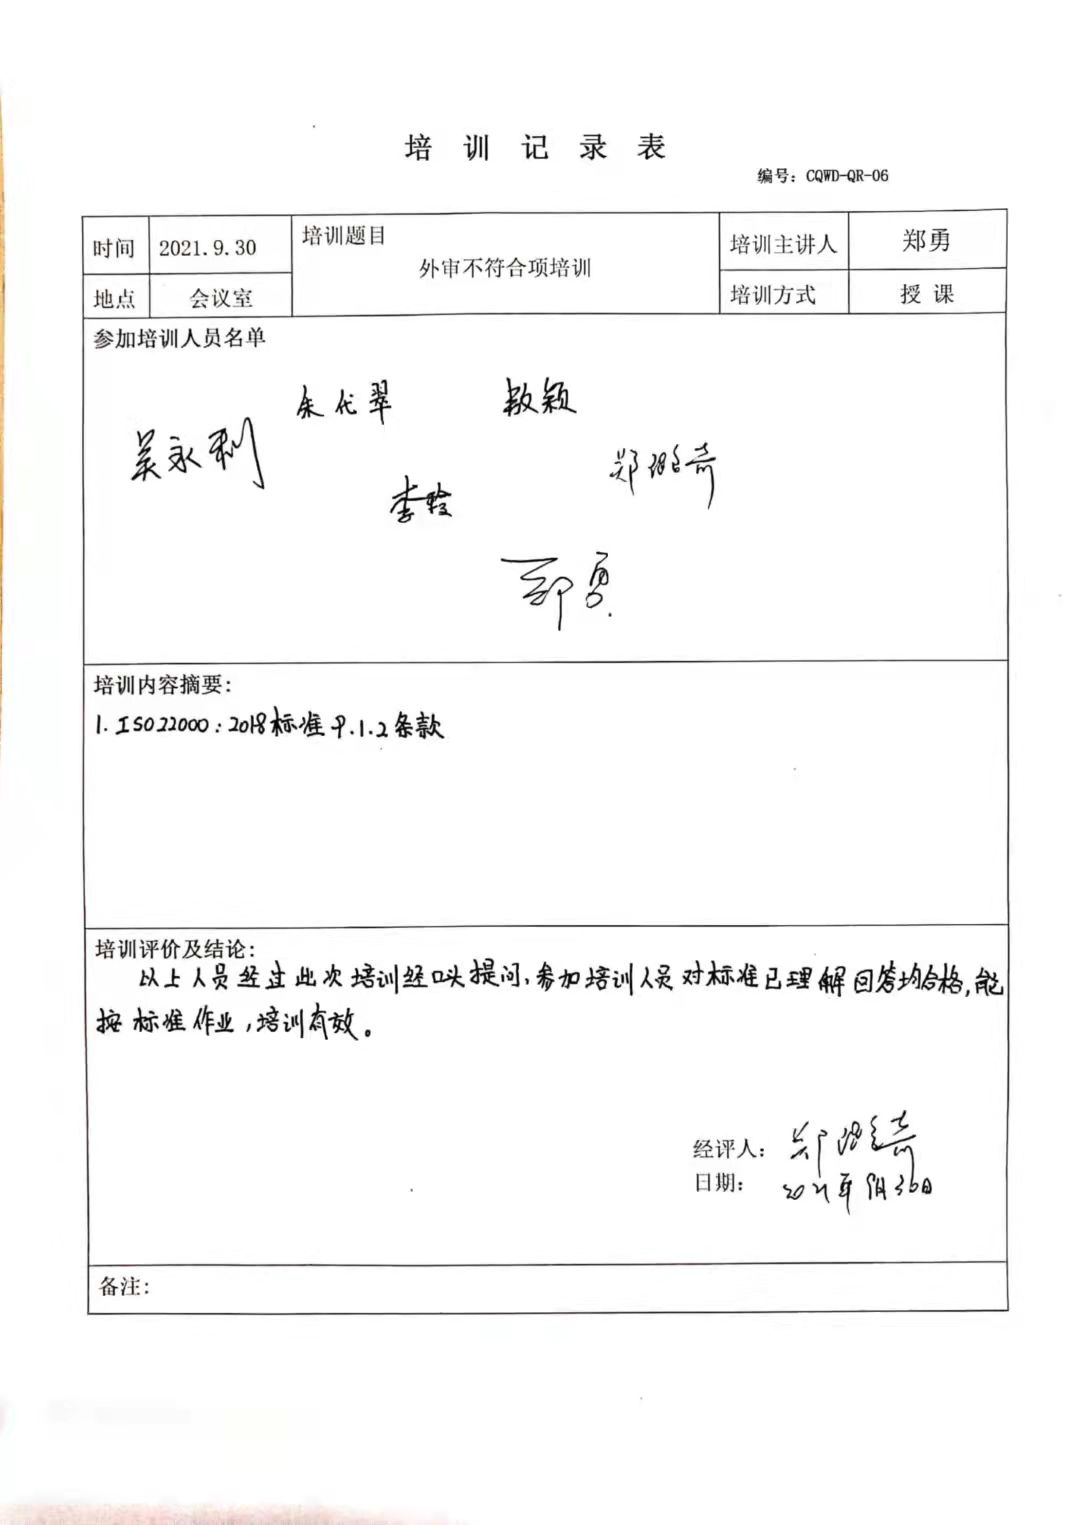 培训记录表
编号：CQWD-QR-06
时间 2021.9.30 培训题目 外审不符合项培训 培训主讲人 郑勇
地点 会议室 培训方式 授课
参加培训人员名单
余代翠 敖颖
吴永利 郑
李
郑勇
培训内容摘要：
1. ISO22000：2018标准9.1.2条款
培训评价及结论：
以上人员经过此次培训经口头提问，参加培训人员对标准已理解回答均合格，能
按标准作业，培训有效。
经评人：郑
日期：2021年9月30日
备注：